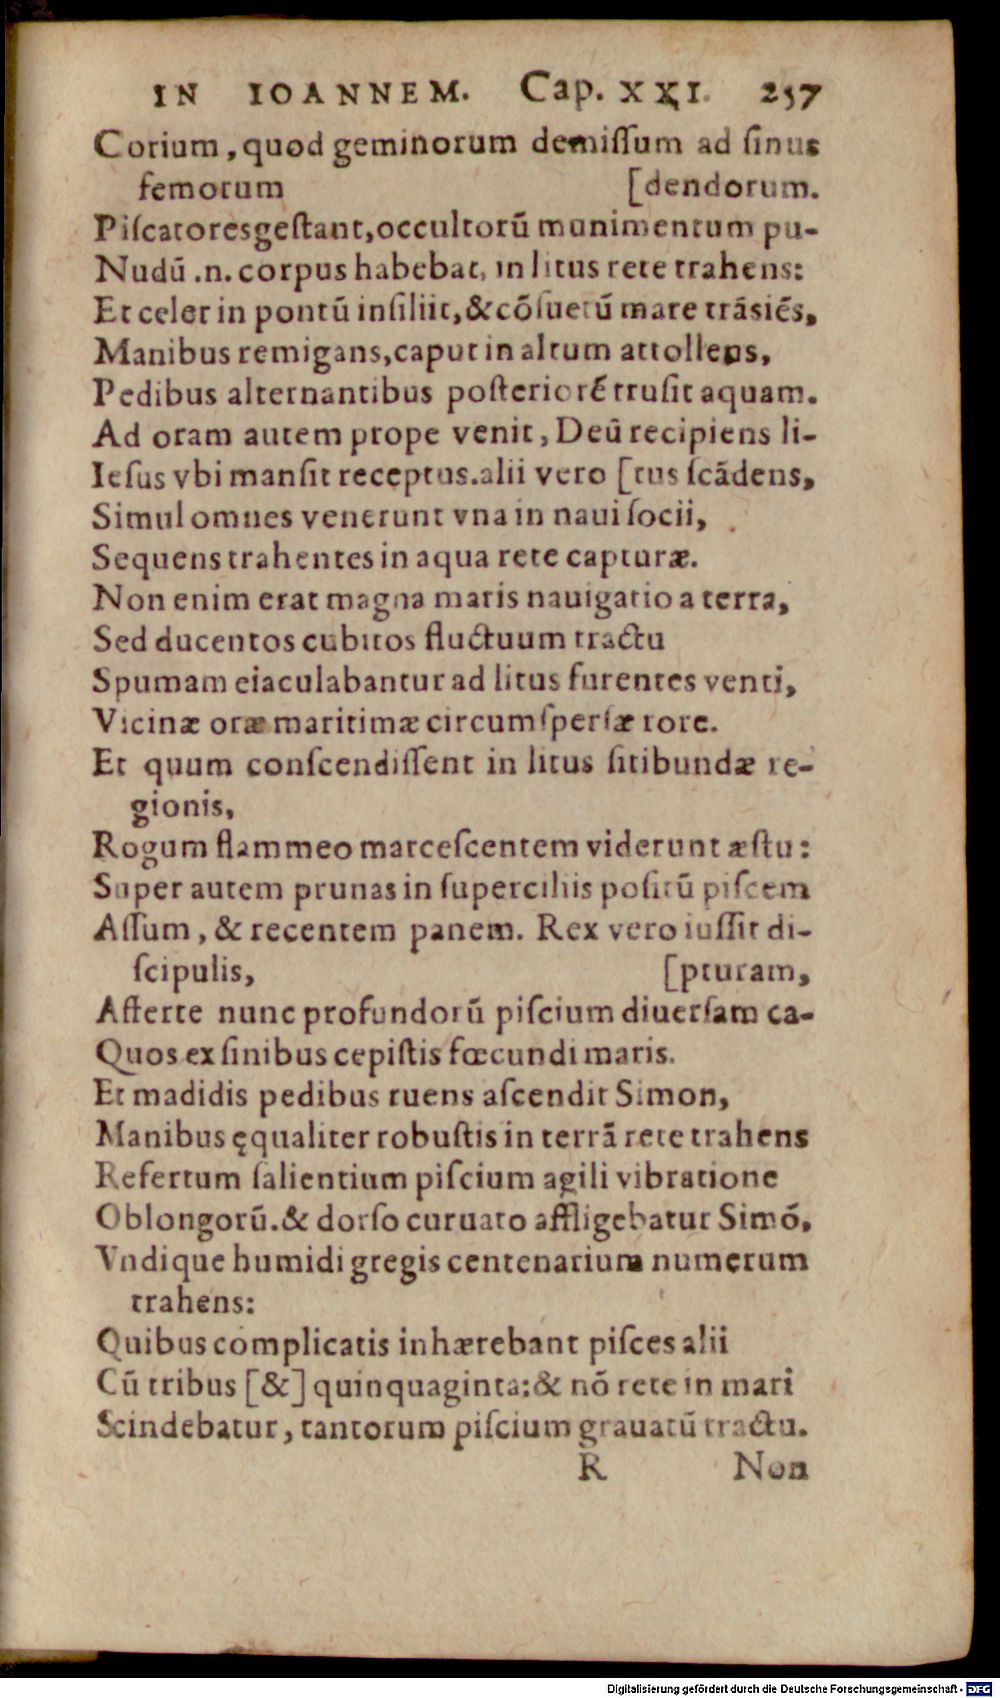 IN IOANNEM. Cap. XXI. 257
Corium, quod geminorum demiſſum ad ſinus
femorum [dendorum.
Piſcatores geſtant, occultorũ munimentum pu-
Nudũ .n. corpus habebat, in litus rete trahens:
Et celer in pontũ inſiliit, & cõſuetũ mare trãsiẽs,
Manibus remigans, caput in altum attollens,
Pedibus alternantibus poſteriorẽ truſit aquam.
Ad oram autem prope venit, Deũ recipiens li-
Ieſus vbi manſit receptus. alii vero [tus ſcãdens,
Simul omnes venerunt vna in naui ſocii,
Sequens trahentes in aqua rete capturæ.
Non enim erat magna maris nauigatio a terra,
Sed ducentos cubitos fluctuum tractu
Spumam eiaculabantur ad litus furentes venti,
Vicinæ oræ maritimæ circumſperſæ rore.
Et quum conſcendiſſent in litus ſitibundæ re-
gionis,
Rogum flammeo marceſcentem viderunt æſtu:
Super autem prunas in ſuperciliis poſitũ piſcem
Aſſum, & recentem panem. Rex vero iuſſit di-
ſcipulis, [pturam,
Afferte nunc profundorũ piſcium diuerſam ca-
Quos ex ſinibus cepiſtis fœcundi maris.
Et madidis pedibus ruens aſcendit Simon,
Manibus ęqualiter robuſtis in terrã rete trahens
Refertum ſalientium piſcium agili vibratione
Oblongorũ. & dorſo curuato affligebatur Simõ,
Vndique humidi gregis centenarium numerum
trahens:
Quibus complicatis inhærebant piſces alii
Cũ tribus [&] quinquaginta: & nõ rete in mari
Scindebatur, tantorum piſcium grauatũ tractu.
R Non
Digitalisierung gefördert durch die Deutsche Forschungsgemeinschaft - DFG